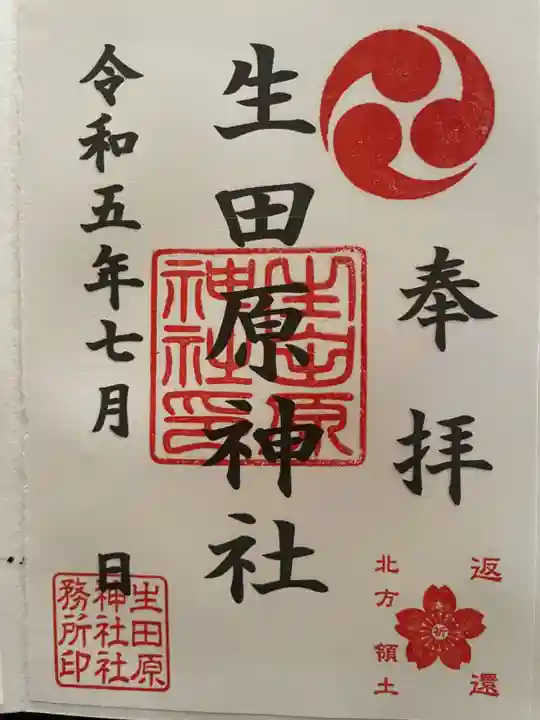 奉拝
返還
祈
北方領土
生田原神社
生田原
神社印
令和五年七月 日
生田原
神社社
務所印